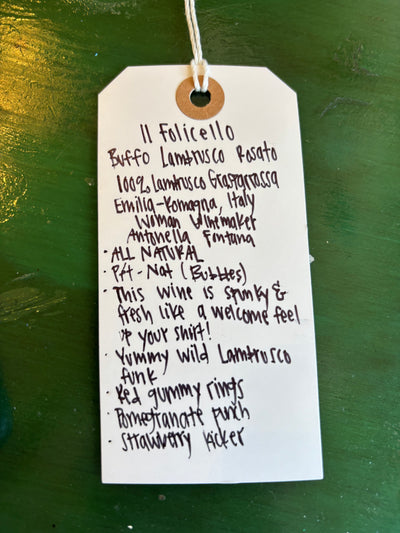 Il Folicello
Buffo Lambrusco Rosato
100% Lambrusco Grasparossa
Emilia-Romagna, Italy
Woman Winemaker
Antonella Fontana
· ALL NATURAL
· Pét-Nat (Bubbles)
· This wine is spunky &
fresh like a welcome feel
up your shirt!
· Yummy wild Lambrusco
funk
· Red gummy rings
· Pomegranate punch
· Strawberry kicker